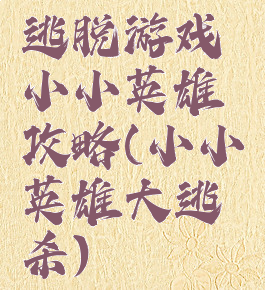 逃脱游戏
小小英雄
攻略(小小
英雄大逃
杀)